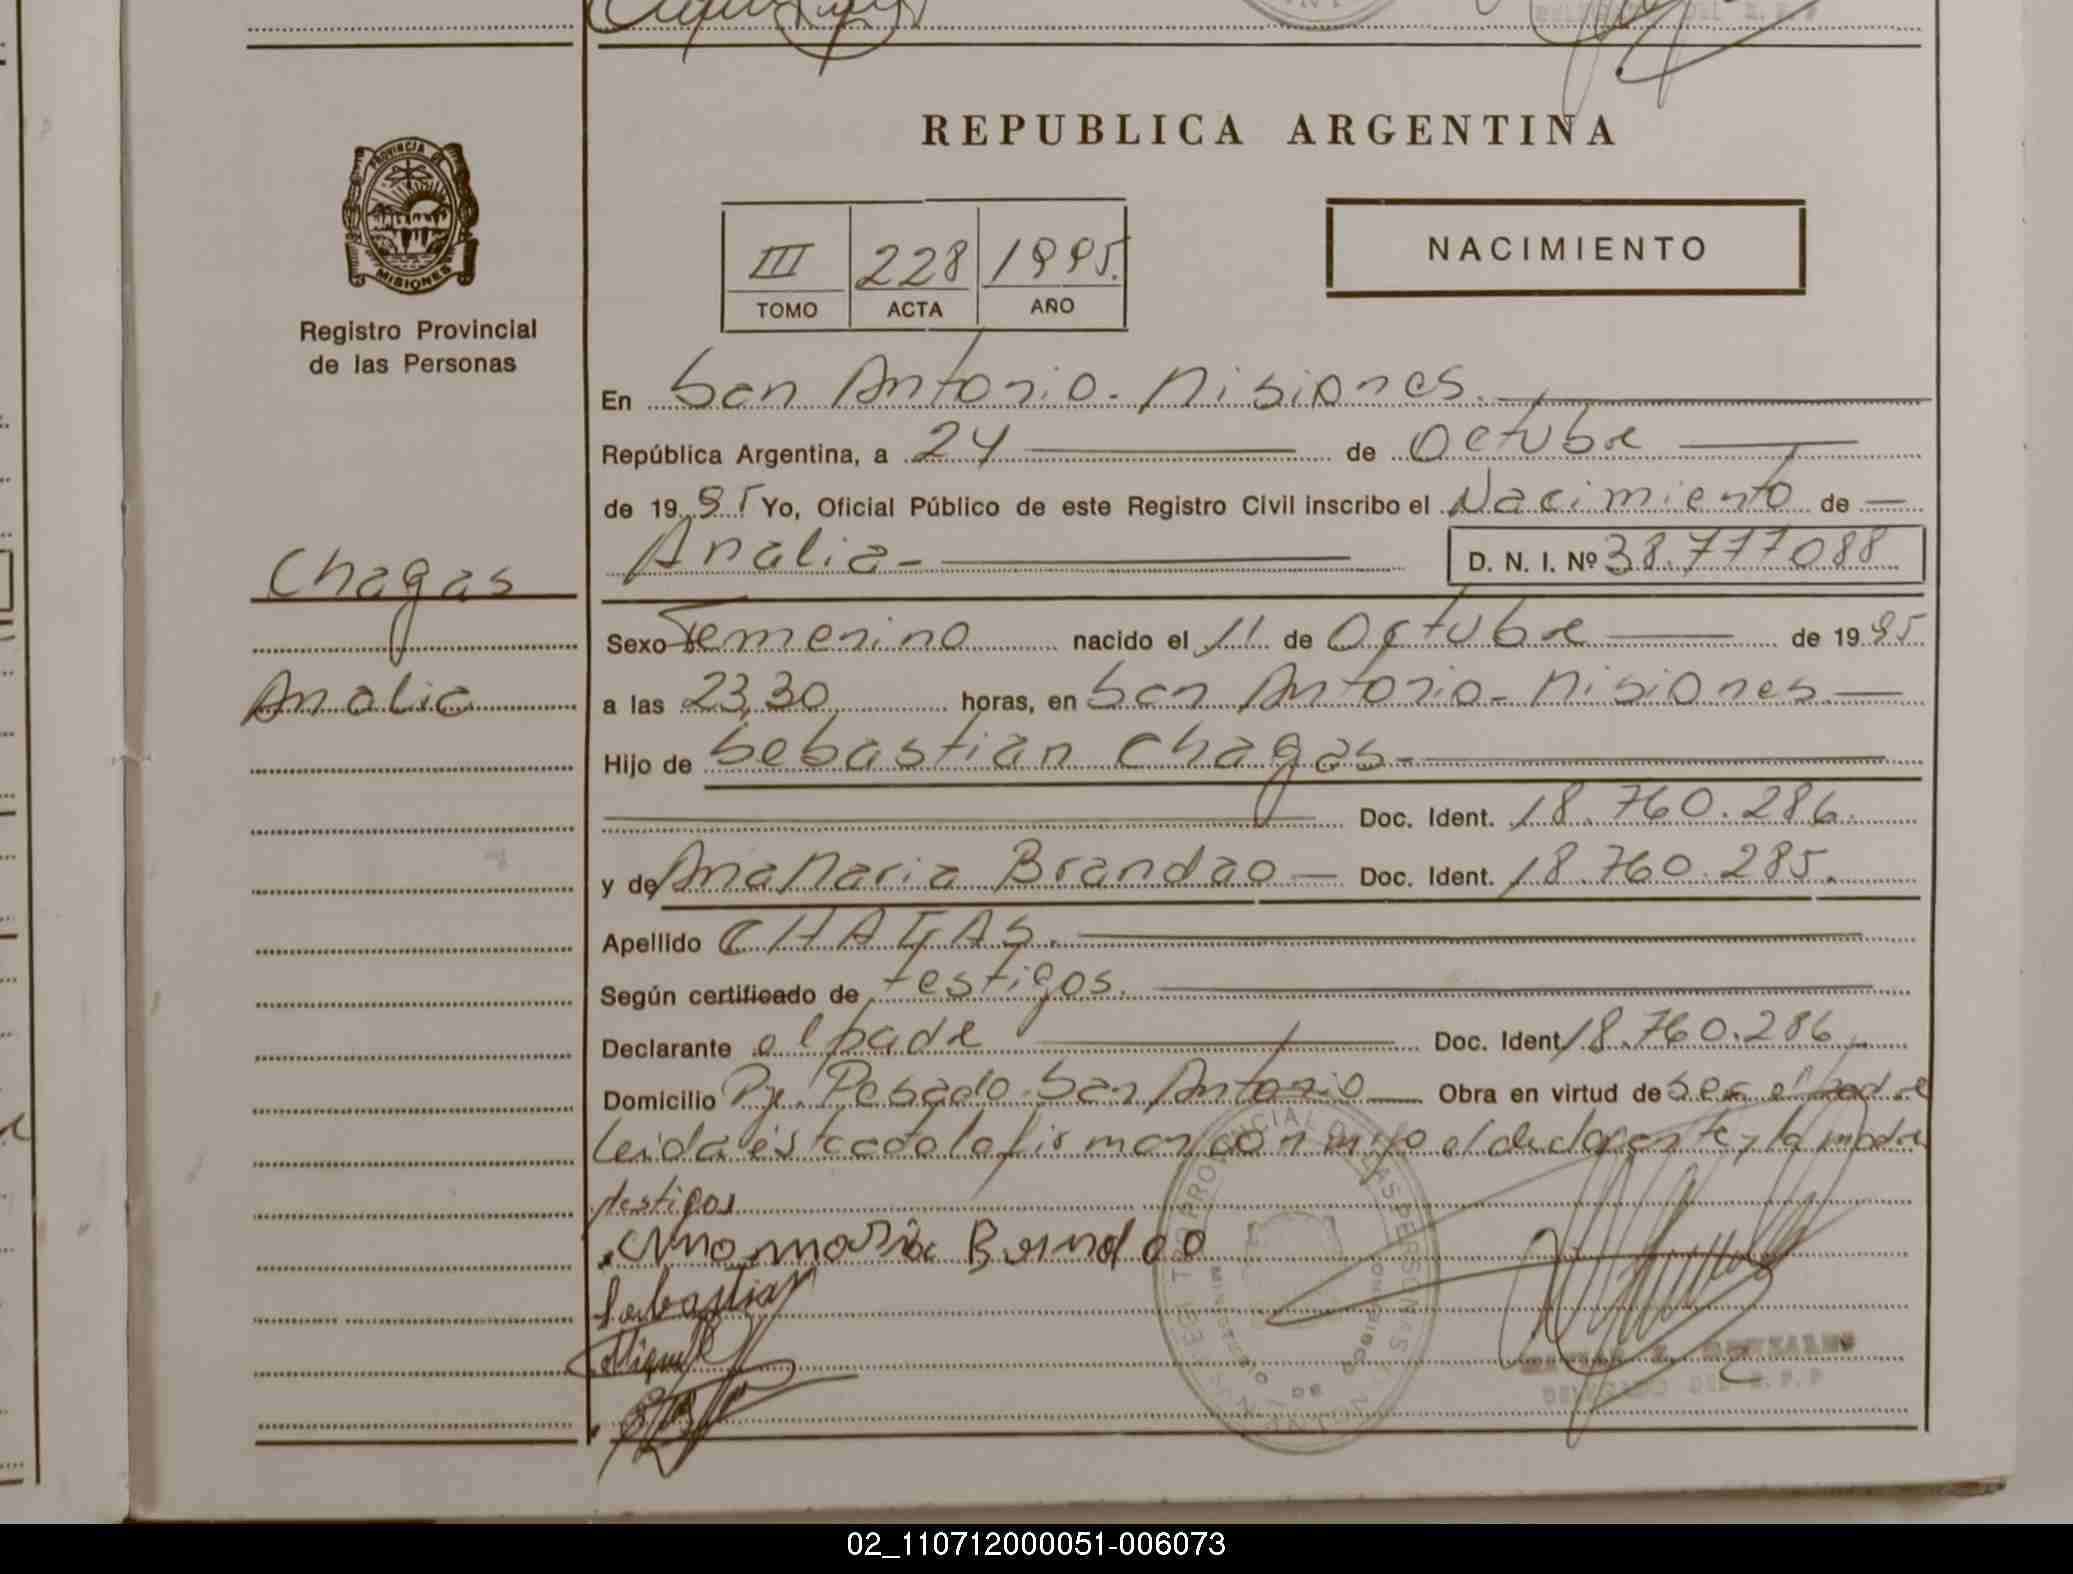 REPUBLICA ARGENTINA
PROVINCIA DE
MISIONES
Registro Provincial
de las Personas
III 228 1995.
TOMO ACTA AÑO
NACIMIENTO
En San Antonio - Misiones.
República Argentina, a 24 de Octubre
de 1995 Yo, Oficial Público de este Registro Civil inscribo el Nacimiento de
Analia - D. N. I. Nº 38.777088
Chagas
Analia
Sexo Femenino nacido el 11 de Octubre de 1995
a las 23,30 horas, en San Antonio - Misiones
Hijo de Sebastián Chagas -
Doc. Ident. 18.760.286.
y de Ana Maria Brandao Doc. Ident. 18.760.285.
Apellido CHAGAS.
Según certificado de testigos.
Declarante el padre Doc. Ident. 18.760.286
Domicilio Pje. Posado San Antonio Obra en virtud de Ser el padre
Leida ésta acta la firman conmigo el declarante y la madre
testigos
Ana maria Brandao
Sebastian
Miguel
REGISTRO PROVINCIAL DE LAS PERSONAS
MINISTERIO DE GOBIERNO
DELEGADO DEL R.P.P
02_110712000051-006073